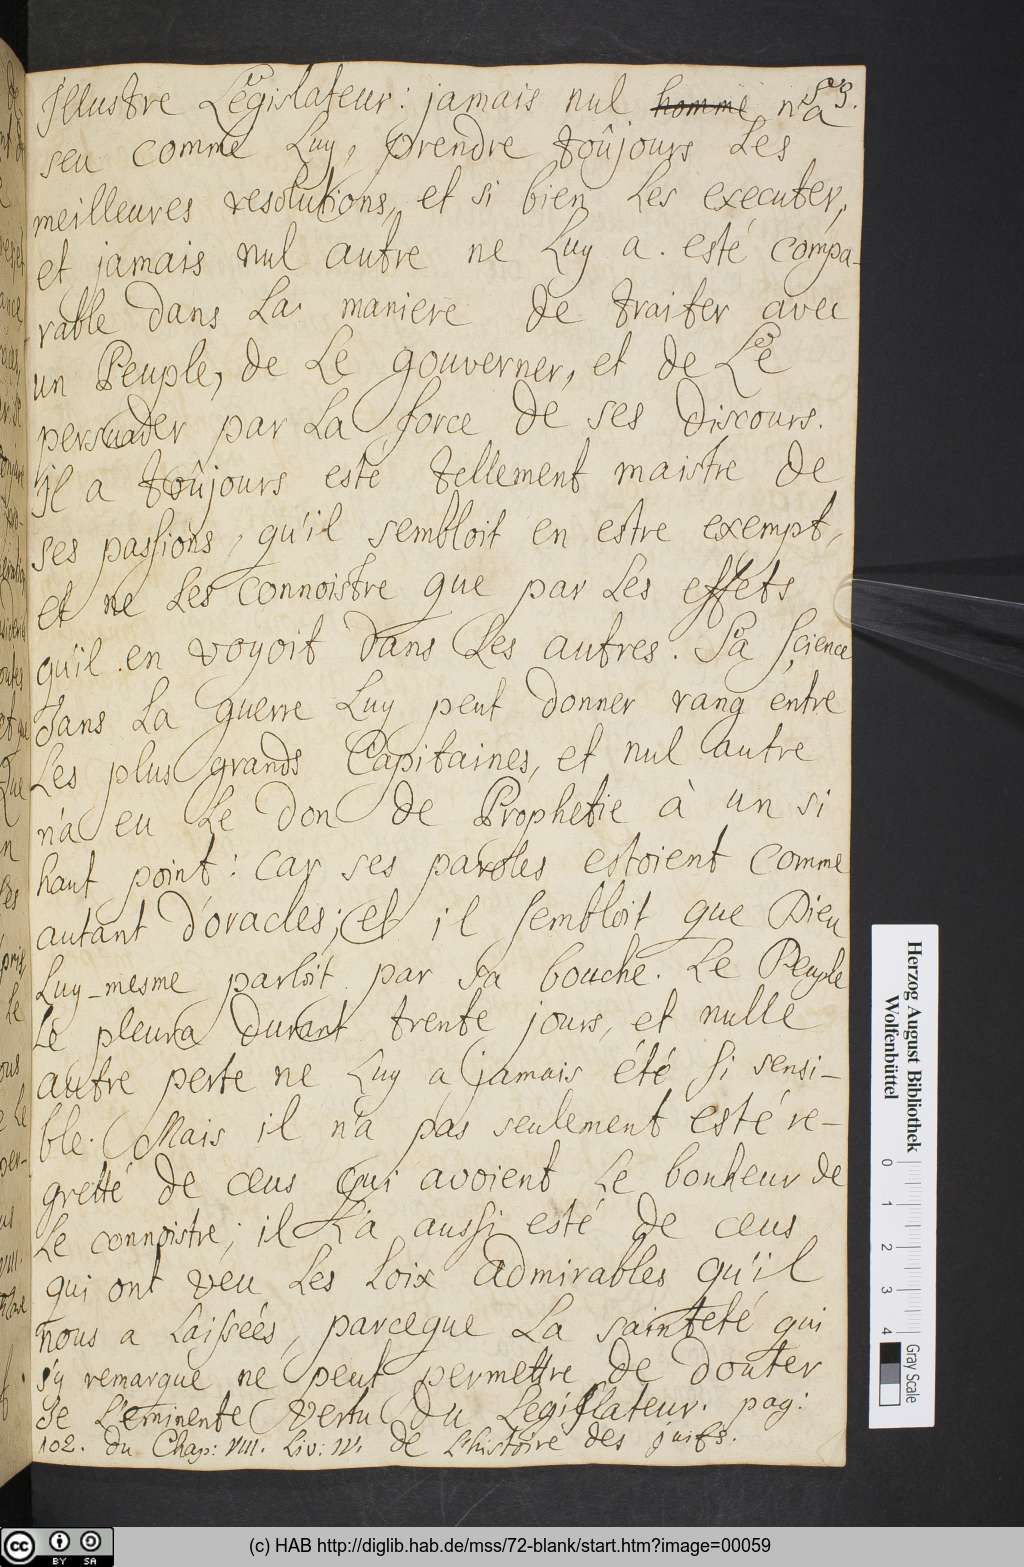 59.
Illustre Législateur: jamais nul homme n'a
seu comme Luy, prendre toûjours Les
meilleures resolutions, et si bien Les executer,
et jamais nul autre ne Luy a. esté compa-
rable dans La maniere de traiter avec
un Peuple, de Le gouverner, et de Le
persuader par La force de ses discours.
il a toûjours esté tellement maistre de
ses passions, qu'il sembloit en estre exempt,
et ne Les connoistre que par Les effets
qu'il en voyoit dans Les autres. Sa sçience
dans La guerre Luy peut donner rang entre
Les plus grands Capitaines, et nul autre
n'a eu Le don de Prophetie à un si
haut point: car ses paroles estoient comme
autant d'oracles; et il sembloit que Dieu
Luy-mesme parloit par sa bouche. Le Peuple
Le pleura durant trente jours, et nulle
autre perte ne Luy a jamais été si sensi-
ble. Mais il n'a pas seulement esté re-
gretté de ceus qui avoient Le bonheur de
Le connoistre; il L'a aussi esté de ceus
qui ont veu Les Loix admirables qu'il
nous a Laissées, parceque La sainteté qui
s'y remarque ne peut permettre de douter
de L'eminente vertu du Legislateur. pag:
102. du Chap: VIII. Liv: IV. de L'histoire des juifs.
Herzog August Bibliothek
Wolfenbüttel
0 1 2 3 4
Gray Scale
cc BY SA
(c) HAB http://diglib.hab.de/mss/72-blank/start.htm?image=00059